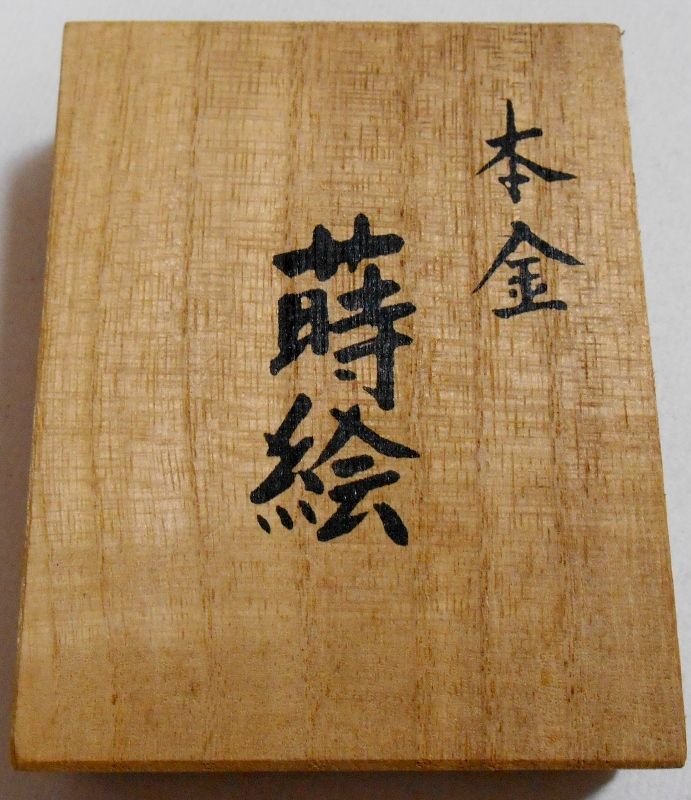 本金
蒔絵